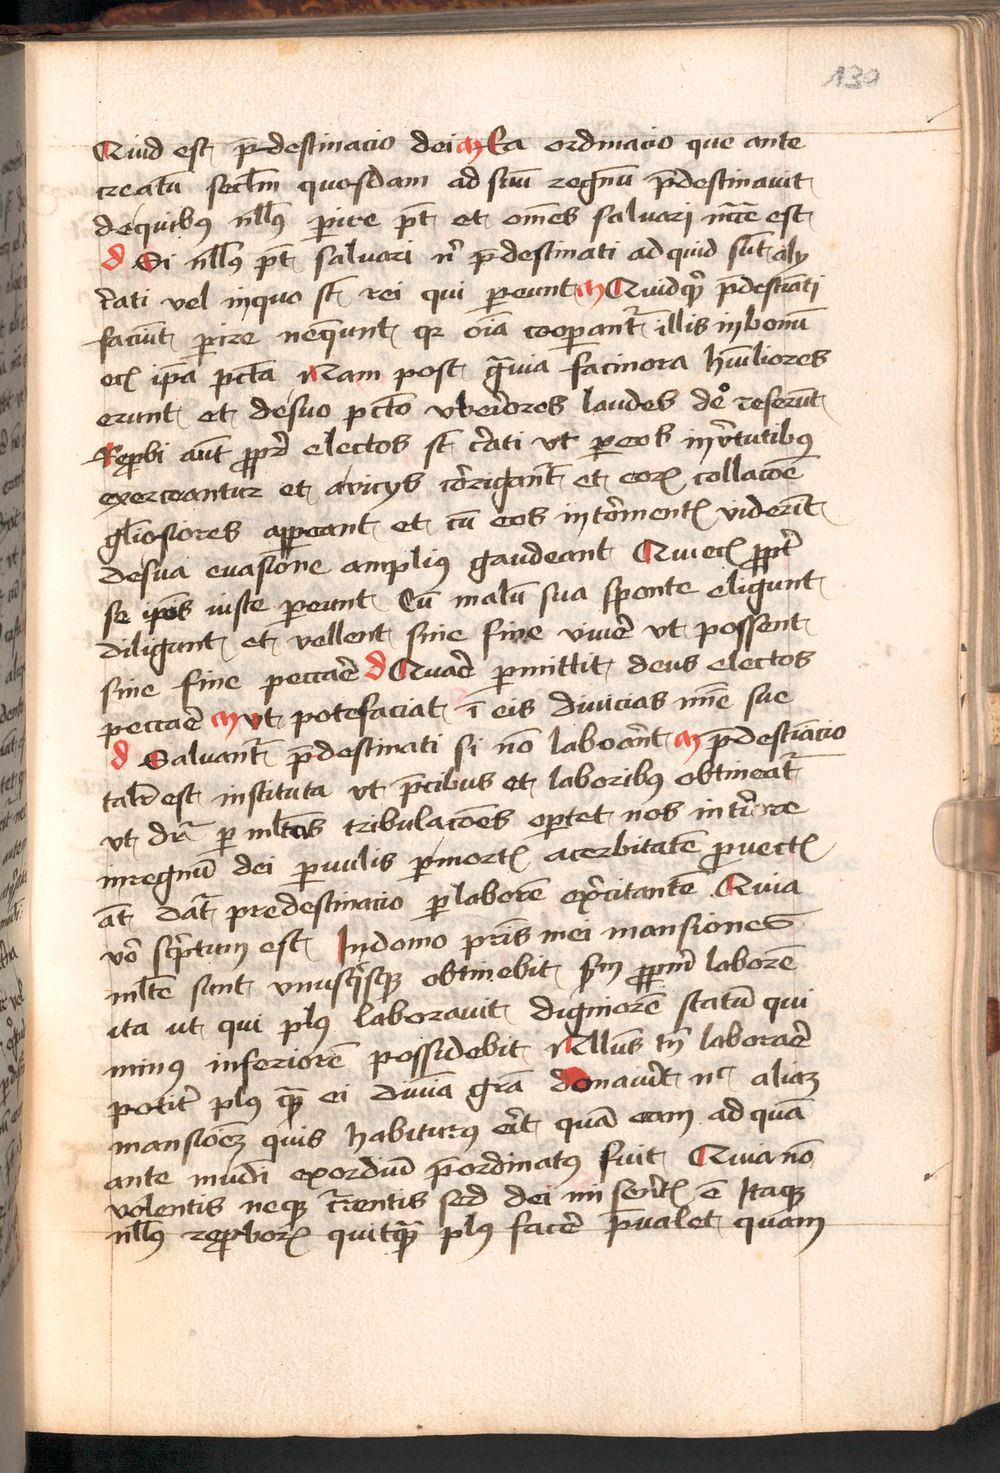 130
Quid est p̄destinacio dei m Ea ordinacio que ante
creatū sec̄lm quosdam ad suū regnū p̄destinauit
de quibus nll9 perire pt̄ et om̄es saluari ncc̄e est
d Si nll9 pt̄ saluari n̄ p̄destinati ad quid sūt aly
c̄ati vel in quo st̄ rei qui pereunt m Quidq̄ p̄destīati
faciūt perire neq̄unt qr oīa cooperant̄ illis in bonū
ecꝫ ip̄a pctā Nam post ḡuia facinora hūiliores
erunt et de suo pctō vberiores laudes deo referūt
Rep̱bi aūt pp̄r electos st̄ c̄ati vt per eos in v̄tutibus
exerceantur et a vicys cōrigant̄ et eoꝝ collacōe
gl̄iosiores appeant et cū eos in tōrmentꝭ viderīt
de sua euasione amplius gaudeant Qui ecꝫ pp̄r
se ip̄os iuste pereunt Cū malū sua sponte eligunt
diligunt et vellent sine fine viuē vt possent
sine fine peccāe d Quāe permittit deus electos
peccāe m vt potefaciat ī eis diuicias mīe sue
d Saluant̄ p̄destinati si nō laborānt m p̄destiācio
talr̄ est instituta vt p̄cibus et laboribus obtineat̄
vt dr̄ per mltās tribulacōes oportet nos intrare
in regnū dei paruulis per mortꝭ acerbitatē prouectꝭ
āt dat̄ predestinacio per laborē exercitantē Quia
vō scp̄tum est In domo pr̄is mei mansiones
mlte sunt vnusq̄sqꝫ obtinebit scdm pp̄riū laborē
ita ut qui plus laborauit digniorē statū qui
minus inferiorē possidebit Nllus tn̄ laborāe
poterit plus qꝫ ei diuīa grā donauit nec aliaꝫ
mansiōeꝫ quis habiturus erit quā eam ad quā
ante mūdi exordiū p̄ordinatus fuit Quia nō
volentis neqꝫ currentis sed dei miserētꝭ ē Itaqꝫ
nll9 rep̱boꝝ quitqꝫ plus facē p̄ualet quam